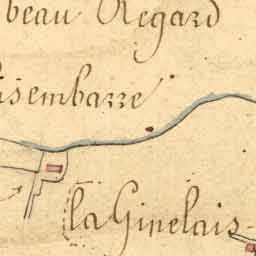 beau Regard
isembarre
la Ginelais